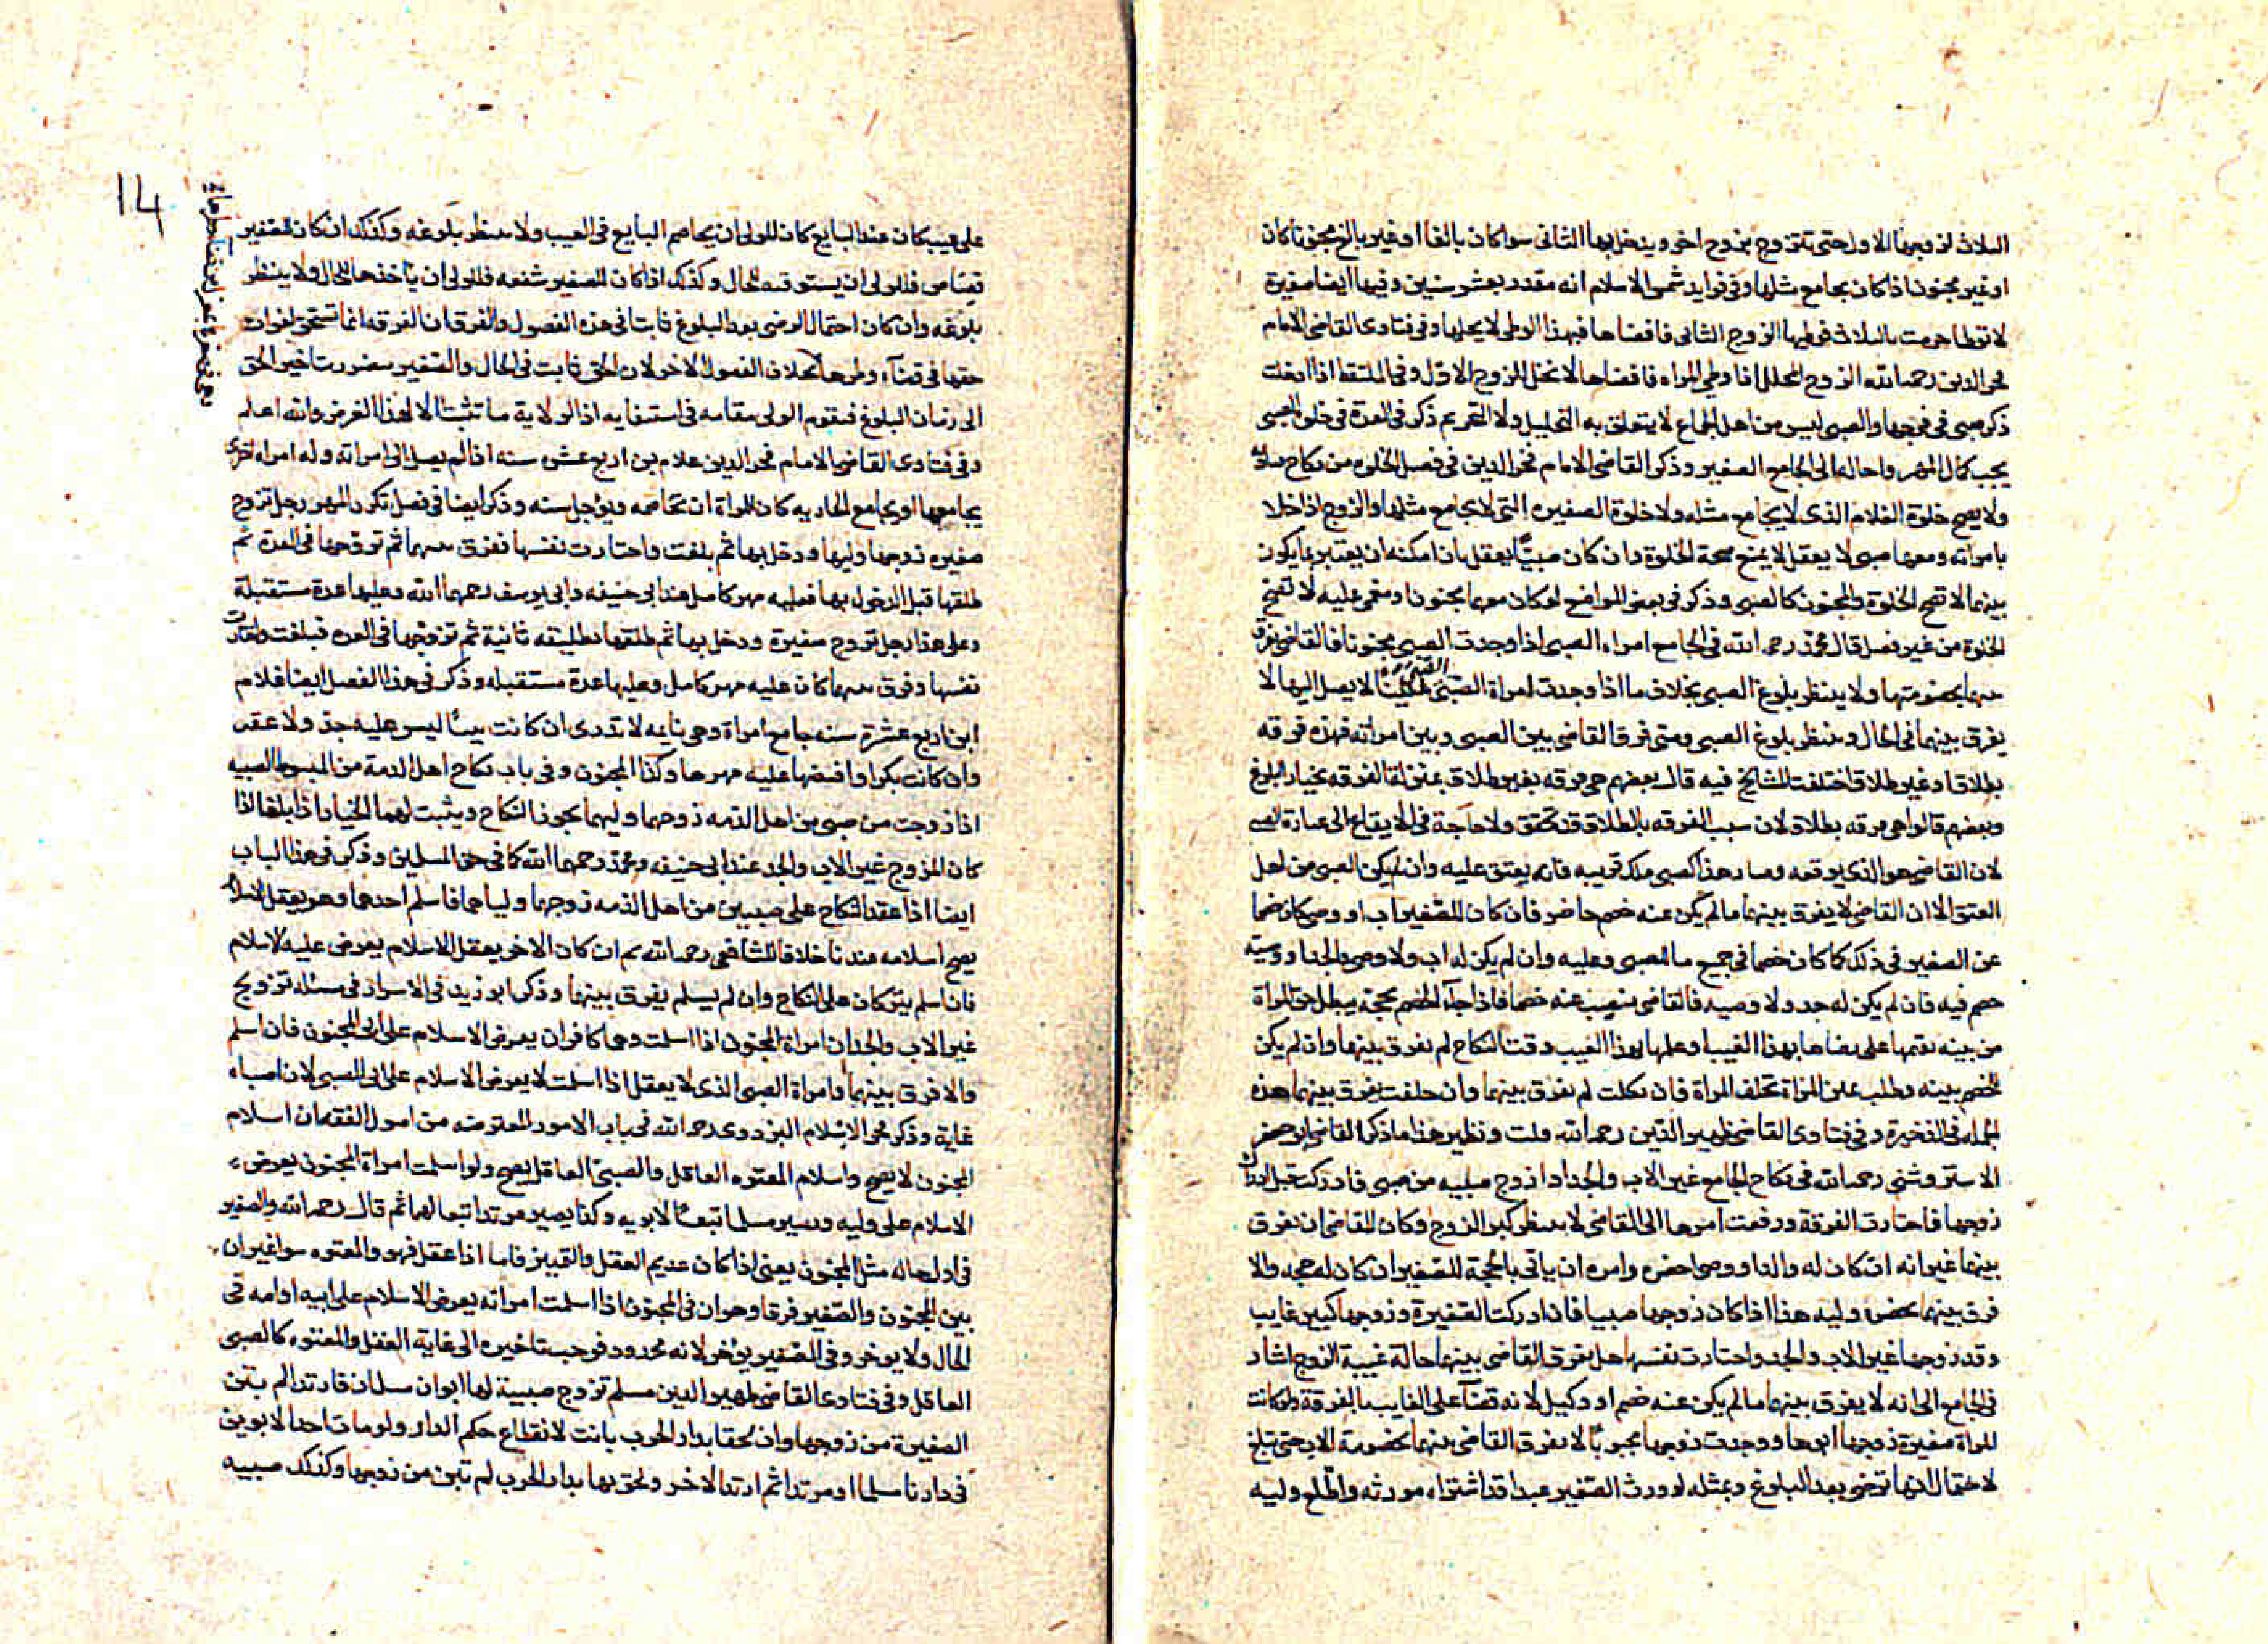 الثلاث لزوجها الاول حتى تتزوج بزوج اخر ويدخل بها الثاني سوا كان بالغا او غير بالغ مجنونا كان
او غير مجنون اذا كان يجامع مثلها وفي فوايد شمس الاسلام انه مقدر بعشر سنين وفيها ايضا صغيرة
لا توطا حرمت بالثلاث فوطيها الزوج الثاني فافضاها فبهذا الوطي لا يحلها وفي فتاوى القاضي الامام
فخر الدين رحمه الله الزوج المحلل اذا وطي المراه فافضاها لا تحل للزوج الاول وفي الملتقط اذا ادخلت
ذكر صبي في فرجها والصبي ليس من اهل الجماع لا يتعلق به التحليل ولا التحريم ذكر في العدة في خلوة الصبي
يجب كمال المهر واحاله الى الجامع الصغير وذكر القاضي الامام فخر الدين في فصل الخلوة من نكاح
ولا يصح خلوة الغلام الذي لا يجامع مثله ولا خلوة الصغيره التي لا يجامع مثلها والزوج اذا خلا
بامراته ومعها صبي لا يعقل لا يمنع صحة الخلوة وان كان صبيا يعقل بان امكنه ان يعتبر ما يكون
بينهما لا تصح الخلوة والمجنون كالصبي وذكر في بعض المواضع لو كان معهما مجنون او مغمى عليه لا تصح
الخلوة من غير فصل قال محمد رحمه الله في الجامع امراه الصبي اذا وجدت الصبي مجبوبا فالقاضي يفرق
بينهما بخصومتها ولا ينتظر بلوغ الصبي بخلاف ما اذا وجدت امراة الصبي عنينا لا يصل اليها لا
يفرق بينهما في الحال وينتظر بلوغ الصبي ومتى فرق القاضي بين الصبي وبين امراته فهذه فرقه
بطلاق او غير طلاق اختلفت المشايخ فيه قال بعضهم هي فرقه بغير طلاق بمنزلة الفرقه بخيار البلوغ
وبعضهم قالوا هي فرقه بطلاق لان سبب الفرقه بالطلاق قد تحقق ولا حاجة في الايقاع الى عبارة الصبي
لان القاضي هو الذي يوقعه وصار هذا كصبي ملك قريبه فانه يعتق عليه وان لم يكن الصبي من اهل
العتق الا ان القاضي لا يفرق بينهما ما لم يكن عنه خصم حاضر فان كان للصغير اب او وصي كان خصما
عن الصغير في ذلك كما كان خصما في جميع ما للصبي وعليه وان لم يكن له اب ولا وصي فالجد او وصيه
خصم فيه فان لم يكن له جد ولا وصيه فالقاضي ينصب عنه خصما فاذا جاء الخصم بحجة يبطل حق المراة
من بينه يقيمها على رضاها بهذا العيب او علمها بهذا العيب وقت النكاح لم يفرق بينهما وان لم يكن
للخصم بينه وطلب يمين المراة تحلف المراة فان نكلت لم يفرق بينهما وان حلفت يفرق بينهما هذه
الجمله في الذخيرة وفي فتاوى القاضي ظهير الدين رحمه الله قلت ونظير هذا ما ذكر القاضي ابو جعفر
الاستروشني رحمه الله في نكاح الجامع غير الاب والجد اذا زوج صبيه من صبي فادركت قبل ادراك
زوجها فاختارت الفرقة ورفعت امرها الى القاضي لا ينتظر كبر الزوج وكان للقاضي ان يفرق
بينهما غير انه ان كان له والد او وصي احضره وامره ان ياتي بالحجة للصغير ان كان له حجه والا
فرق بينهما بحضرة وليه هذا اذا كان زوجها صبيا فاذا ادركت الصغيرة وزوجها كبير غايب
وقد زوجها غير الاب والجد واختارت نفسها هل يفرق القاضي بينهما حالة غيبة الزوج اشار
في الجامع الى انه لا يفرق بينهما ما لم يكن عنه خصم او وكيل لانه قضا على الغايب بالفرقة ولو كانت
المراة صغيرة زوجها ابوها ووجدت زوجها مجبوبا لا يفرق القاضي بينهما بخصومة الاب حتى تبلغ
لاحتمال انها ترضى بعد البلوغ وبمثله لو ورث الصغير عبدا قد اشتراه مورثه واطلع وليه
14
على عيب كان عند البايع كان للولي ان يخاصم البايع في العيب ولا ينتظر بلوغه وكذلك ان كان للصغير
قصاص فللولي ان يستوفيه للحال وكذلك اذا كان للصغير شفعه فللولي ان ياخذها للحال ولا ينتظر
بلوغه وان كان احتمال الرضى بعد البلوغ ثابتا في هذه الفصول والفرق ان الفرقه انما تستحق لفوات
حقها في قضاء وطرها بخلاف الفصول الاخر لان الحق ثابت في الحال والصغير يتضرر بتاخير الحق
الى زمان البلوغ فيقوم الولي مقامه في استيفايه اذ الولاية ما تثبت الا لهذا الغرض والله اعلم
وفي فتاوى القاضي الامام فخر الدين غلام بن اربع عشره سنه اذا لم يصل الى امراته وله امراه اخرى
يجامعها او يجامع الجاريه كان للمراة ان تخاصمه ويؤجل سنه وذكر ايضا في فصل تكرر المهر رجل تزوج
صغيره زوجها وليها ودخل بها ثم بلغت واختارت نفسها ففرق بينهما ثم تزوجها في العدة ثم
طلقها قبل الدخول بها فعليه مهر كامل عند ابي حنيفه وابي يوسف رحمهما الله وعليها عدة مستقبلة
وعلى هذا رجل تزوج صغيرة ودخل بها ثم طلقها تطليقه ثانية ثم تزوجها في العده فبلغت واختارت
نفسها وفرق بينهما كان عليه مهر كامل وعليها عدة مستقبله وذكر في هذا الفصل ايضا غلام
ابن اربع عشرة سنه جامع امراة وهي نايمه لا تدري ان كانت ثيبا ليس عليه حد ولا عقر
وان كانت بكرا وافتضها عليه مهرها وكذا المجنون وفي باب نكاح اهل الذمة من المبسوط الصبيه
اذا زوجت من صبي من اهل الذمه زوجهما وليهما يجوز النكاح ويثبت لهما الخيار اذا بلغا اذا
كان المزوج غير الاب والجد عند ابي حنيفه ومحمد رحمهما الله كما في حق المسلمين وذكر في هذا الباب
ايضا اذا عقد النكاح على صبيين من اهل الذمه زوجهما ولياهما فاسلم احدهما وهو يعقل الاسلام
يصح اسلامه عندنا خلافا للشافعي رحمه الله ثم ان كان الاخر يعقل الاسلام يعرض عليه الاسلام
فان اسلم يتركان على النكاح وان لم يسلم يفرق بينهما وذكر ابو زيد في الاسرار في مسئله تزويج
غير الاب والجد ان امراة المجنون اذا اسلمت وهما كافران يعرض الاسلام على ابي المجنون فان اسلم
والا فرق بينهما وامراة الصبي الذي لا يعقل اذا اسلمت لا يعرض الاسلام على ابي الصبي لان لصباه
غاية وذكر فخر الاسلام البزدوي رحمه الله في باب الامور المعترضه من اصول الفقه ان اسلام
المجنون لا يصح واسلام المعتوه العاقل والصبي العاقل يصح ولو اسلمت امراة المجنون يعرض
الاسلام على وليه ويصير مسلما تبعا لابويه وكذا يصير مرتدا تبعا لهما ثم قال رحمه الله والصغير
في اول حاله مثل المجنون يعني اذا كان عديم العقل والتمييز فاما اذا عقل فهو والمعتوه سوا غير ان
بين المجنون والصغير فرقا وهو ان في المجنون اذا اسلمت امراته يعرض الاسلام على ابيه او امه في
الحال ولا يوخر وفي الصغير يؤخر لانه محدود فوجب تاخيره الى غاية العقل والمعتوه كالصبي
العاقل وفي فتاوى القاضي ظهير الدين مسلم تزوج صبية لها ابوان مسلمان فارتدا لم تبن
الصغيرة من زوجها وان لحقا بدار الحرب بانت لانقطاع حكم الدار ولو مات احد الابوين
في دارنا مسلما او مرتدا ثم ارتد الاخر ولحق بها بدار الحرب لم تبن من زوجها وكذلك صبيه